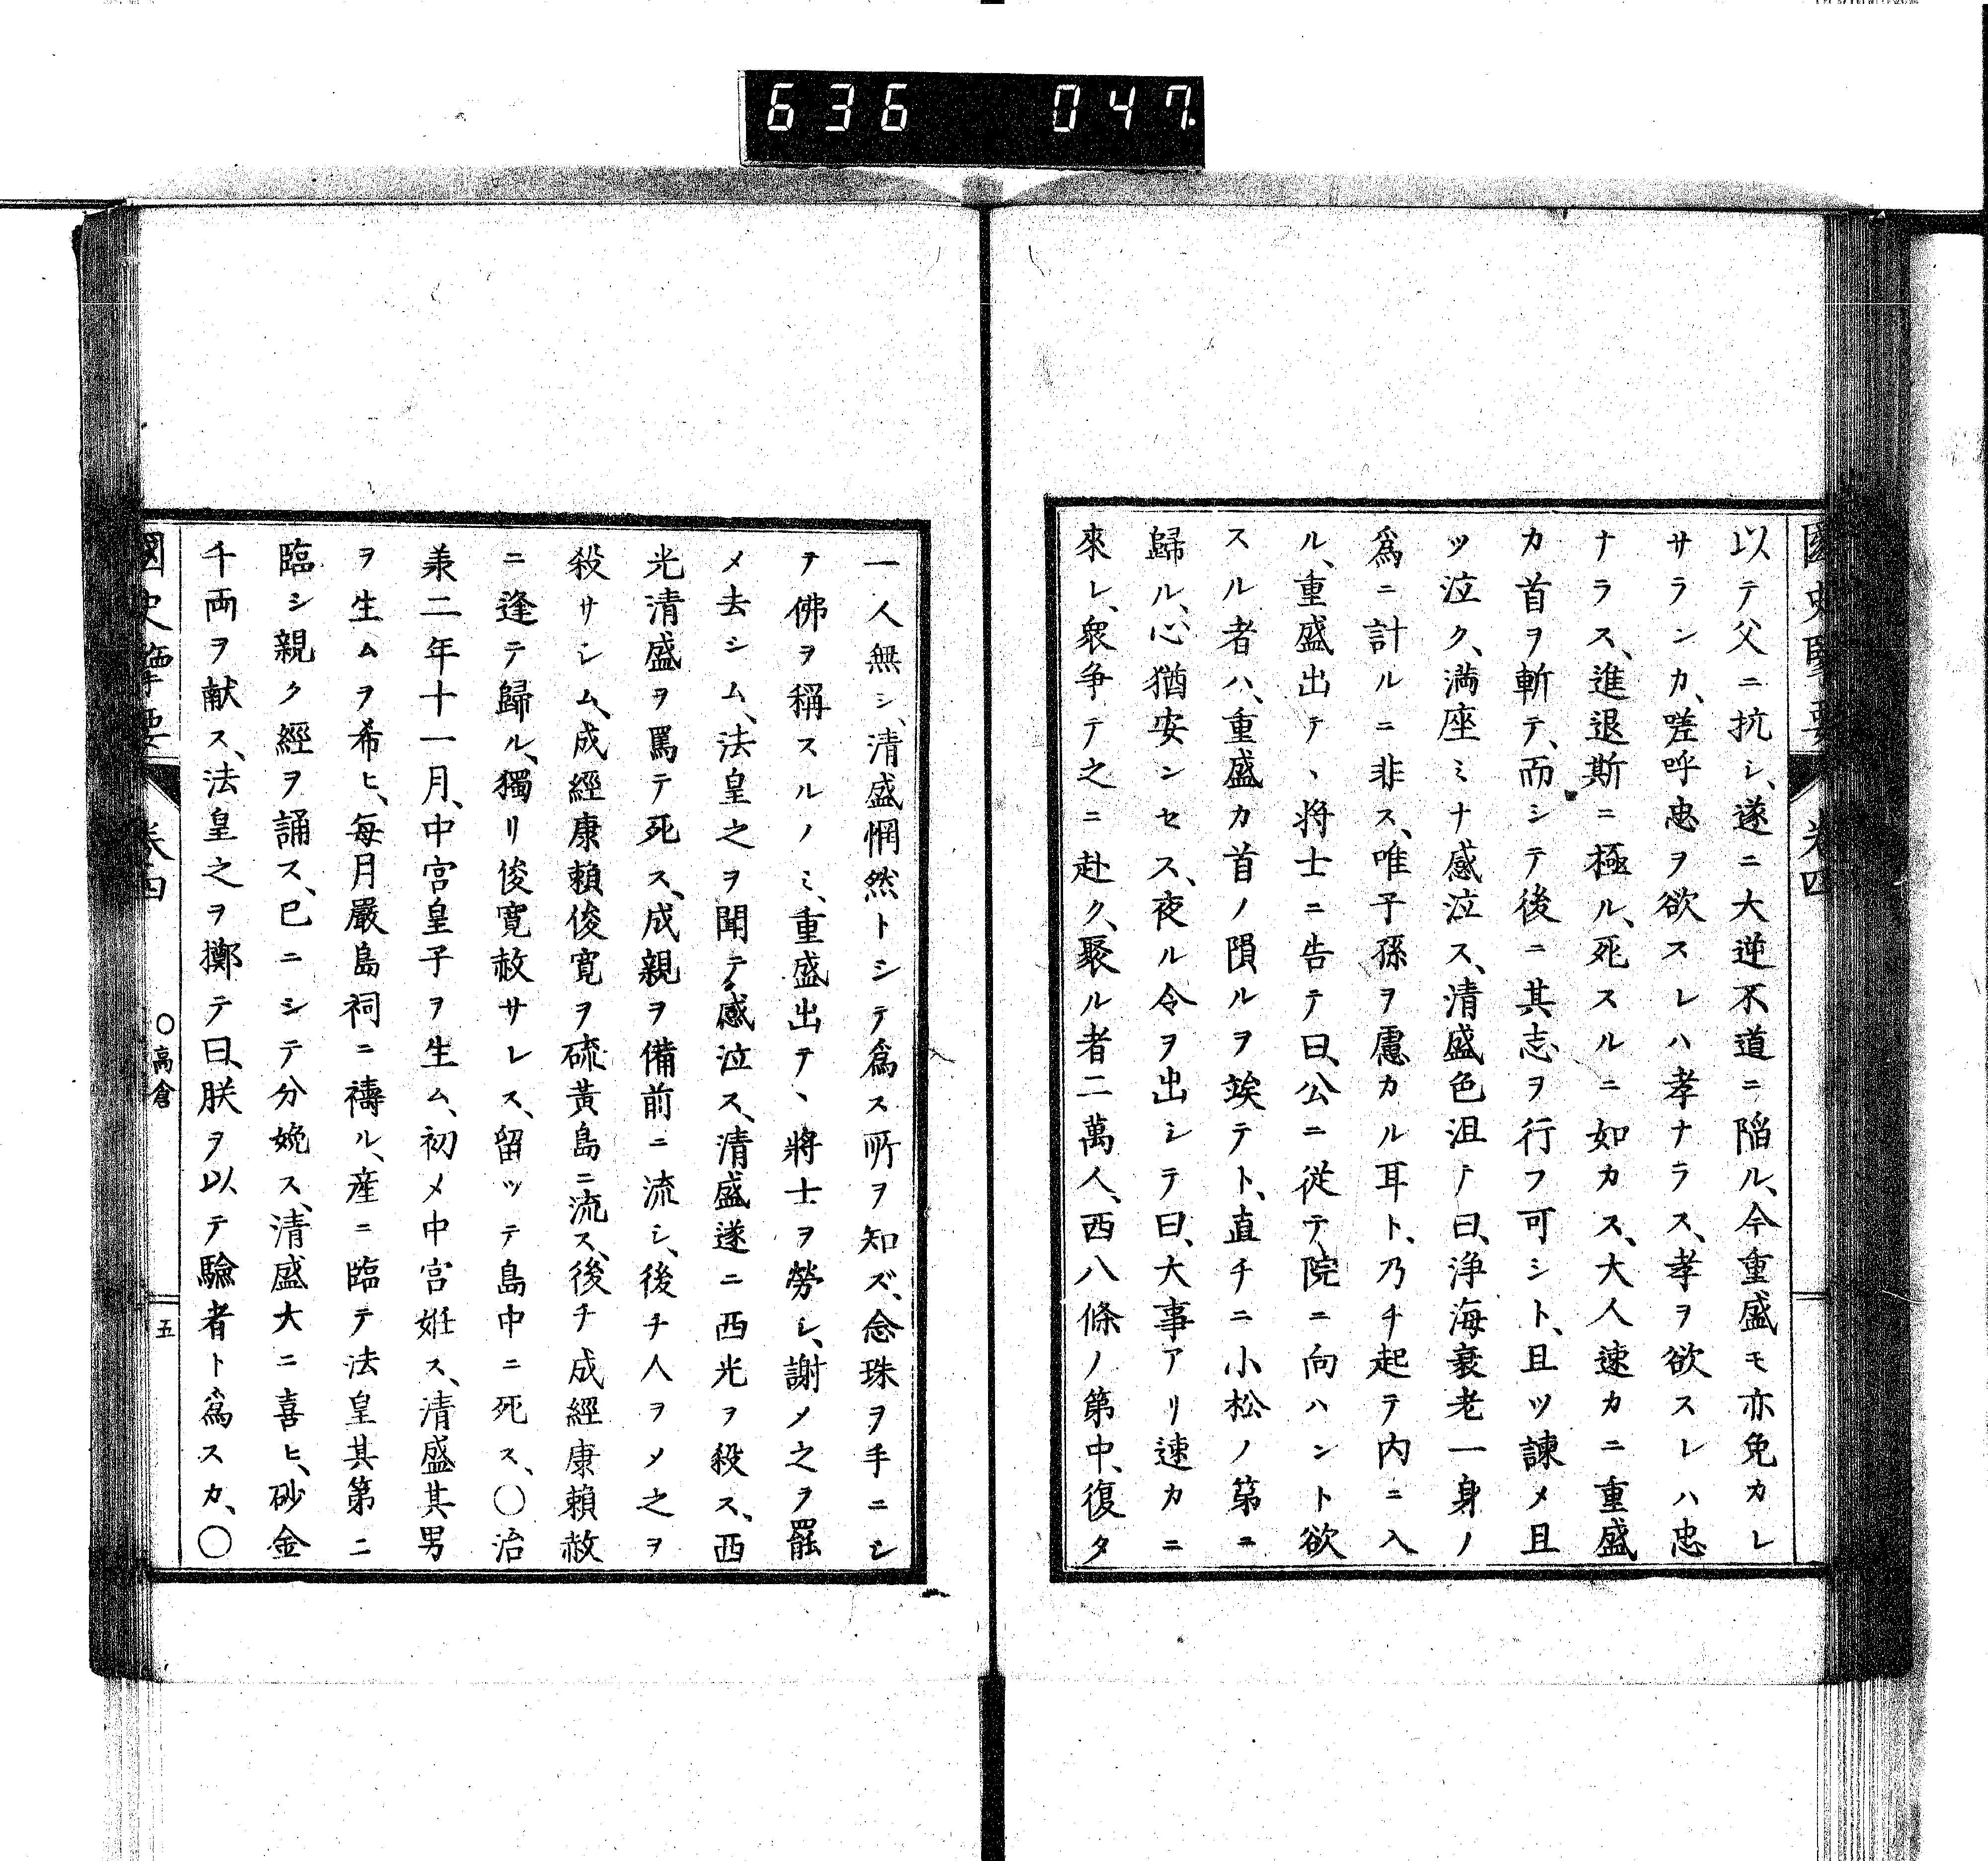 636 047
國史擥要 卷四
以テ父ニ抗シ、遂ニ大逆不道ニ陥ル、今重盛モ亦免カレ
サランカ、嗟呼忠ヲ欲スレハ孝ナラス、孝ヲ欲スレハ忠
ナラス、進退斯ニ極ル、死スルニ如カス、大人速カニ重盛
カ首ヲ斬テ、而シテ後ニ其志ヲ行フ可シト、且ツ諫メ且
ツ泣ク、満座ミナ感泣ス、清盛色沮テ曰、浄海衰老一身ノ
爲ニ計ルニ非ス、唯子孫ヲ慮カル耳ト、乃チ起テ内ニ入
ル、重盛出テヽ将士ニ告テ曰、公ニ従テ院ニ向ハント欲
スル者ハ、重盛カ首ノ隕ルヲ竢テト、直チニ小松ノ第ニ
歸ル、心猶安ンセス、夜ル令ヲ出シテ曰、大事アリ速カニ
來レ、衆争テ之ニ赴ク、聚ル者二萬人、西八條ノ第中、復タ
一人無シ、清盛惘然トシテ爲ス所ヲ知ズ、念珠ヲ手ニシ
テ佛ヲ稱スルノミ、重盛出テヽ將士ヲ勞シ、謝メ之ヲ罷
メ去シム、法皇之ヲ聞テ感泣ス、清盛遂ニ西光ヲ殺ス、西
光清盛ヲ罵テ死ス、成親ヲ備前ニ流シ、後チ人ヲメ之ヲ
殺サシム、成經康頼俊寛ヲ硫黃島ニ流ス、後チ成經康頼赦
ニ逢テ歸ル、獨リ俊寛赦サレス、留ツテ島中ニ死ス、〇治
承二年十一月、中宮皇子ヲ生ム、初メ中宮姙ス、清盛其男
ヲ生ムヲ希ヒ、毎月嚴島祠ニ禱ル、産ニ臨テ法皇其第ニ
臨シ親ク經ヲ誦ス、已ニシテ分娩ス、清盛大ニ喜ヒ、砂金
千両ヲ献ス、法皇之ヲ擲テ曰、朕ヲ以テ驗者ト爲スカ、〇
國史擥要 卷四 〇高倉 五